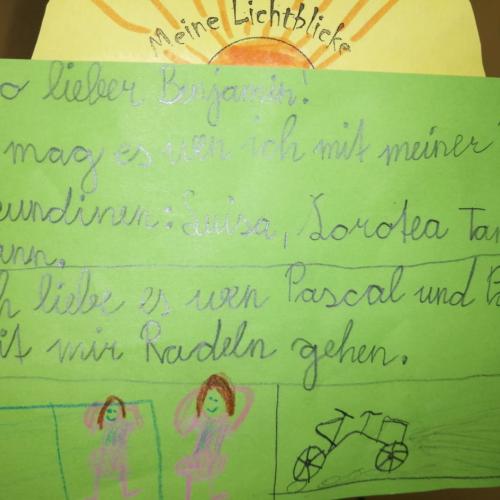 Meine Lichtblicke
o lieber Benjamin!
mag es wen ich mit meiner
eundinen: Luisa, Lorotea Tan
ann.
h liebe es wen Pascal und
it mir Radeln gehen.